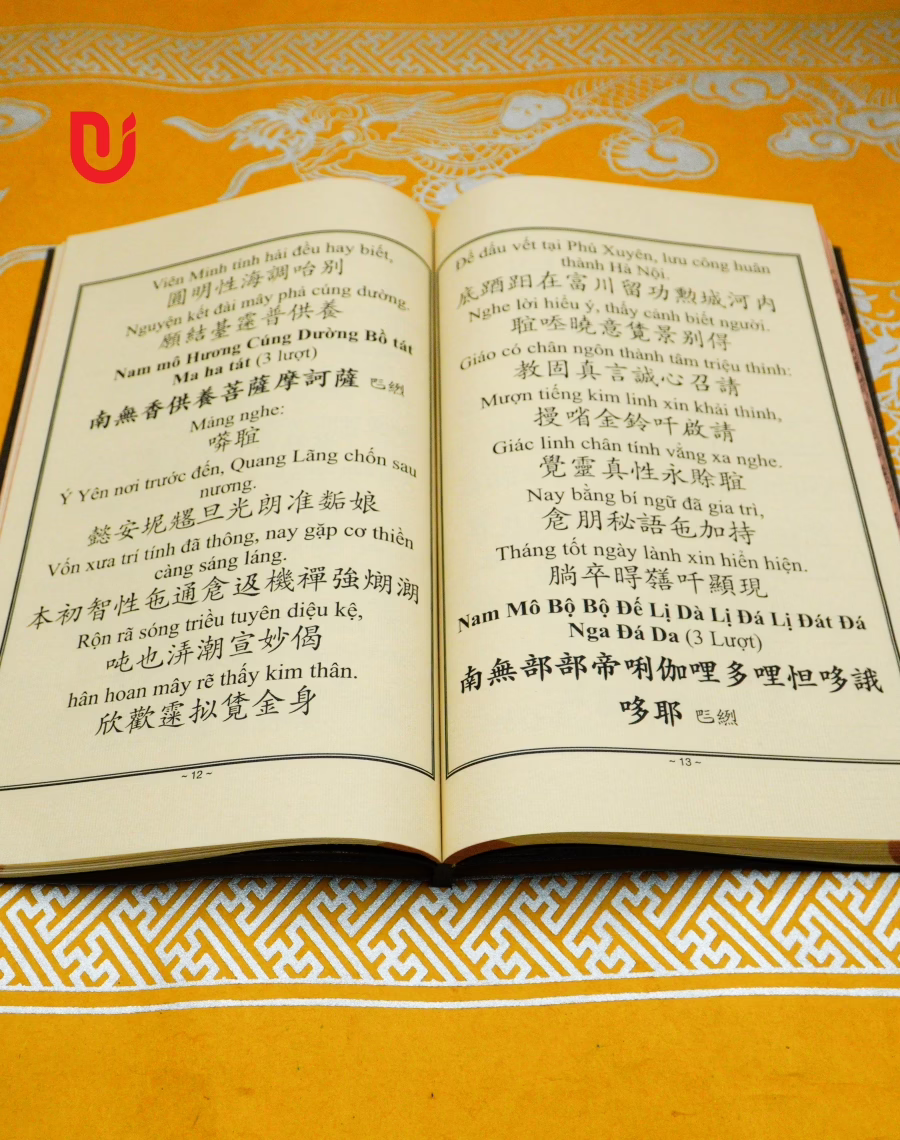 Viên Minh tính hải đều hay biết,
圓明性海調咍別
Nguyện kết đài mây phả cúng dường.
願結臺䨺普供養
Nam mô Hương Cúng Dường Bồ tát
Ma ha tát (3 lượt)
南無香供養菩薩摩訶薩
Mảng nghe:
𠵘
Ý Yên nơi trước đến, Quang Lãng chốn sau
nương.
懿安坭旦光朗准娘
Vốn xưa trí tính đã thông, nay gặp cơ thiền
càng sáng láng.
本初智性㐌通機禪強
Rộn rã sóng triều tuyên diệu kệ,
吨也潮宣妙偈
hân hoan mây rẽ thấy kim thân.
欣歡䨺拟金身
~ 12 ~
Để dấu vết tại Phú Xuyên, lưu công huân
thành Hà Nội.
底在富川留功勲城河内
Nghe lời hiểu ý, thấy cảnh biết người.
曉意景別得
Giáo có chân ngôn thành tâm triệu thỉnh:
教固真言誠心召請
Mượn tiếng kim linh xin khải thỉnh,
㗂金鈴吀啟請
Giác linh chân tính vẳng xa nghe.
覺靈真性永賒
Nay bằng bí ngữ đã gia trì,
朋秘語㐌加持
Tháng tốt ngày lành xin hiển hiện.
卒吀顯現
Nam Mô Bộ Bộ Đế Lị Dà Lị Đá Lị Đát Đá
Nga Đá Da (3 Lượt)
南無部部帝唎伽哩多哩怛哆誐
哆耶
~ 13 ~